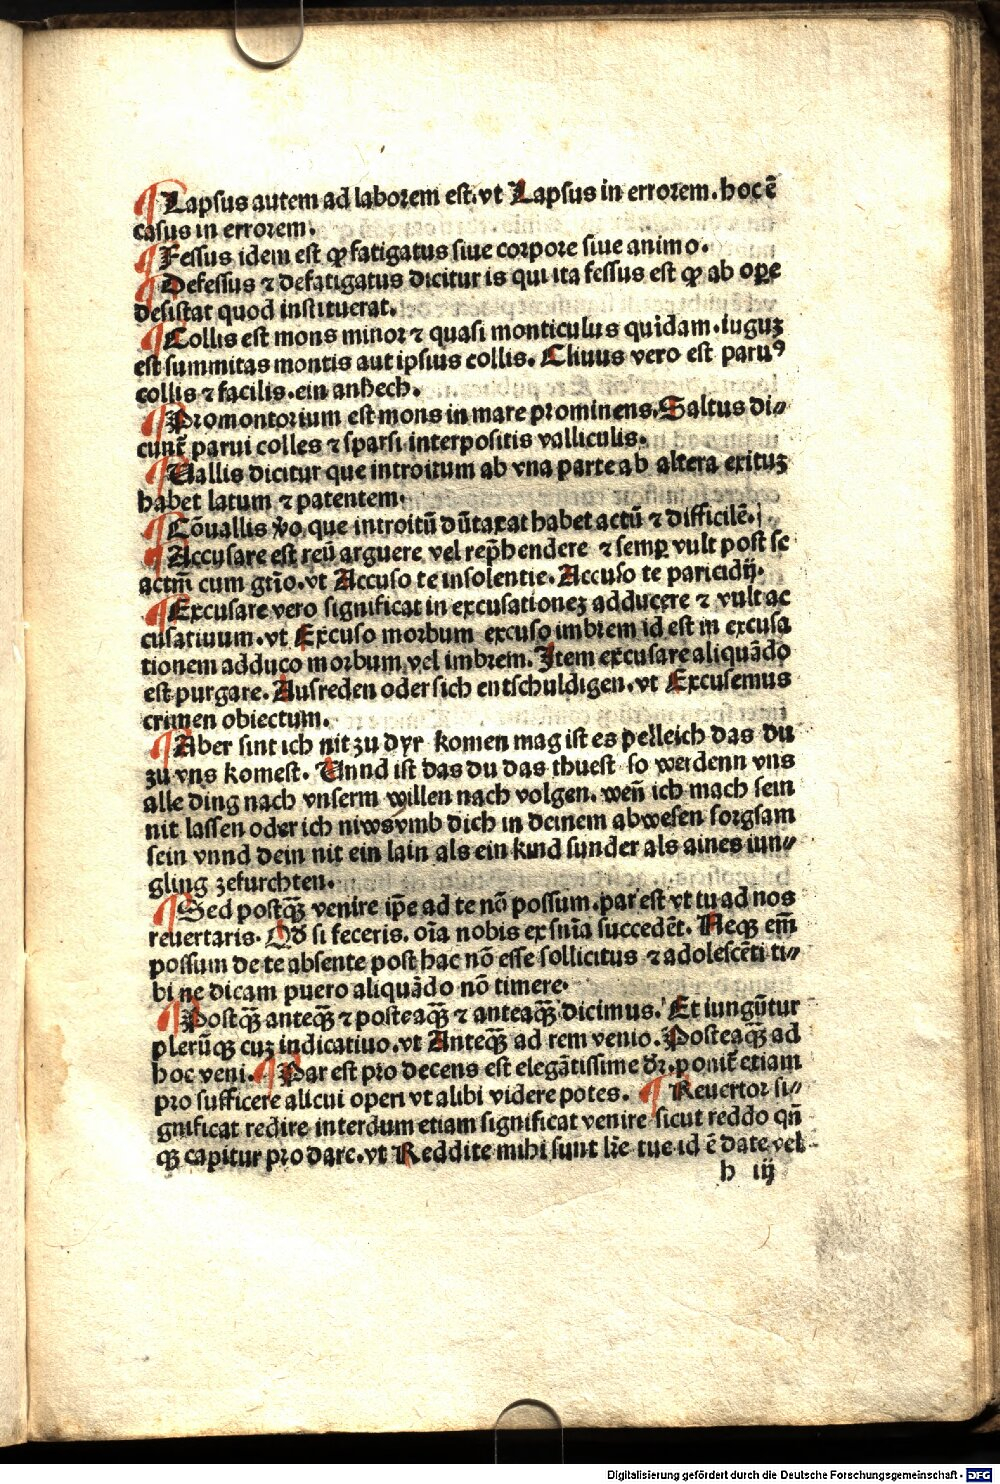 ¶ Lapsus autem ad laborem est. vt Lapsus in errorem. hoc ē
casus in errorem.
¶ Fessus idem est ꝙ fatigatus siue corpore siue animo.
¶ Defessus ⁊ defatigatus dicitur is qui ita fessus est ꝙ ab oꝑe
desistat quod instituerat.
¶ Collis est mons minor ⁊ quasi monticulus quidam. iuguꝫ
est summitas montis aut ipsius collis. Cliuus vero est paruꝰ
collis ⁊ facilis. ein anhech.
¶ Promontorium est mons in mare prominens. Saltus di⸗
cunt̄ parui colles ⁊ sparsi interpositis valliculis.
¶ Uallis dicitur que introitum ab vna parte ab altera exituꝫ
habet latum ⁊ patentem.
¶ Cōuallis v̄o que introitū dūtaxat habet actū ⁊ difficilē.
¶ Accusare est reū arguere vel rep̄hendere ⁊ semꝑ vult post se
actm̄ cum gtīo. vt Accuso te insolentie. Accuso te paricidij.
¶ Excusare vero significat in excusationeꝫ adducere ⁊ vult ac
cusatiuum. vt Excuso morbum excuso imbrem id est in excusa
tionem adduco morbum vel imbrem. Item excusare aliquādo
est purgare. Ausreden oder sich entschuldigen. vt Excusemus
crimen obiectum.
¶ Aber sint ich nit zu dyr komen mag ist es pelleich das du
zu vns komest. Unnd ist das du das thuest so werdenn vns
alle ding nach vnserm willen nach volgen. wen̄ ich mach sein
nit lassen oder ich niws vmb dich in deinem abwesen sorgsam
sein vnnd dein nit ein lain als ein kind sunder als aines iun⸗
gling zefurchten.
¶ Sed postꝙ̄ venire ip̄e ad te nō possum. par est vt tu ad nos
reuertaris. Qd̄ si feceris. oīa nobis ex sn̄ia succedēt. Neqꝫ em̄
possum de te absente post hac nō esse sollicitus ⁊ adolescēti ti⸗
bi ne dicam puero aliquādo nō timere.
¶ Postꝙ̄ anteꝙ̄ ⁊ posteaꝙ̄ ⁊ anteaꝙ̄ dicimus. Et iungūtur
plerūqꝫ cuꝫ indicatiuo. vt Anteꝙ̄ ad rem venio. Posteaꝙ̄ ad
hoc veni. ¶ Par est pro decens est elegātissime dr̄. ponit̄ etiam
pro sufficere alicui operi vt alibi videre potes. ¶ Reuertor si⸗
gnificat redire interdum etiam significat venire sicut reddo qn̄
qꝫ capitur pro dare. vt Reddite mihi sunt lr̄e tue id ē date vel
h iij
Digitalisierung gefördert durch die Deutsche Forschungsgemeinschaft - DFG